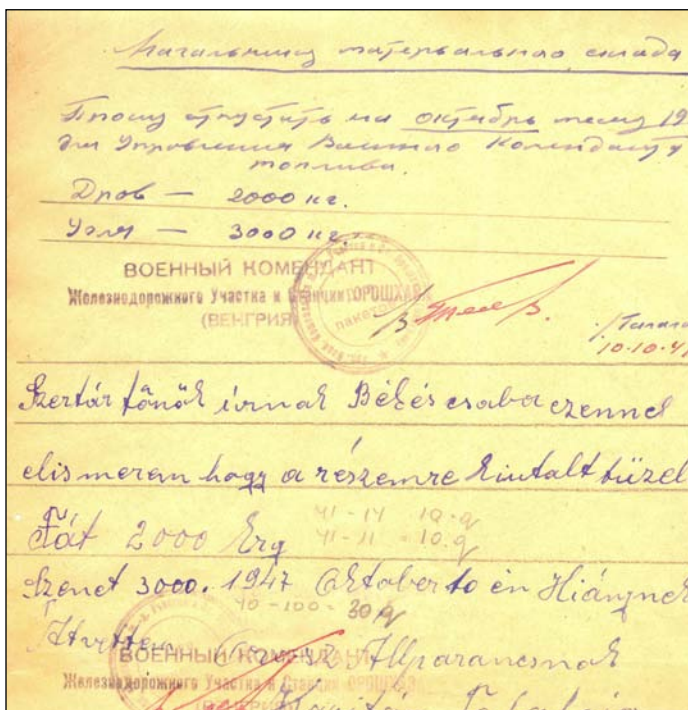 Начальнику материального склада
Прошу отпустить на октябрь месяц 19
для Управления Военного Коменданту
топлива.
Дров — 2000 кг.
Угля — 3000 кг.
ВОЕННЫЙ КОМЕНДАНТ
Железнодорожного Участка и Станции ОРОШХАЗА
(ВЕНГРИЯ)
10.10.4
Szertár főnök úrnak Békéscsaba ezennel
elismerem hogy a részemre kiutalt tüzel
Fát 2000 krg
41-14 10.q
41-11 - 10.q
Szenet 3000. 1947 Oktober 10 én Hiánynek
40-100 = 30 q
Átvettem
ВОЕННЫЙ КОМЕНДАНТ
Állparancsnok
Железнодорожного Участка и Станции ОРОШХАЗА
(ВЕНГРИЯ)